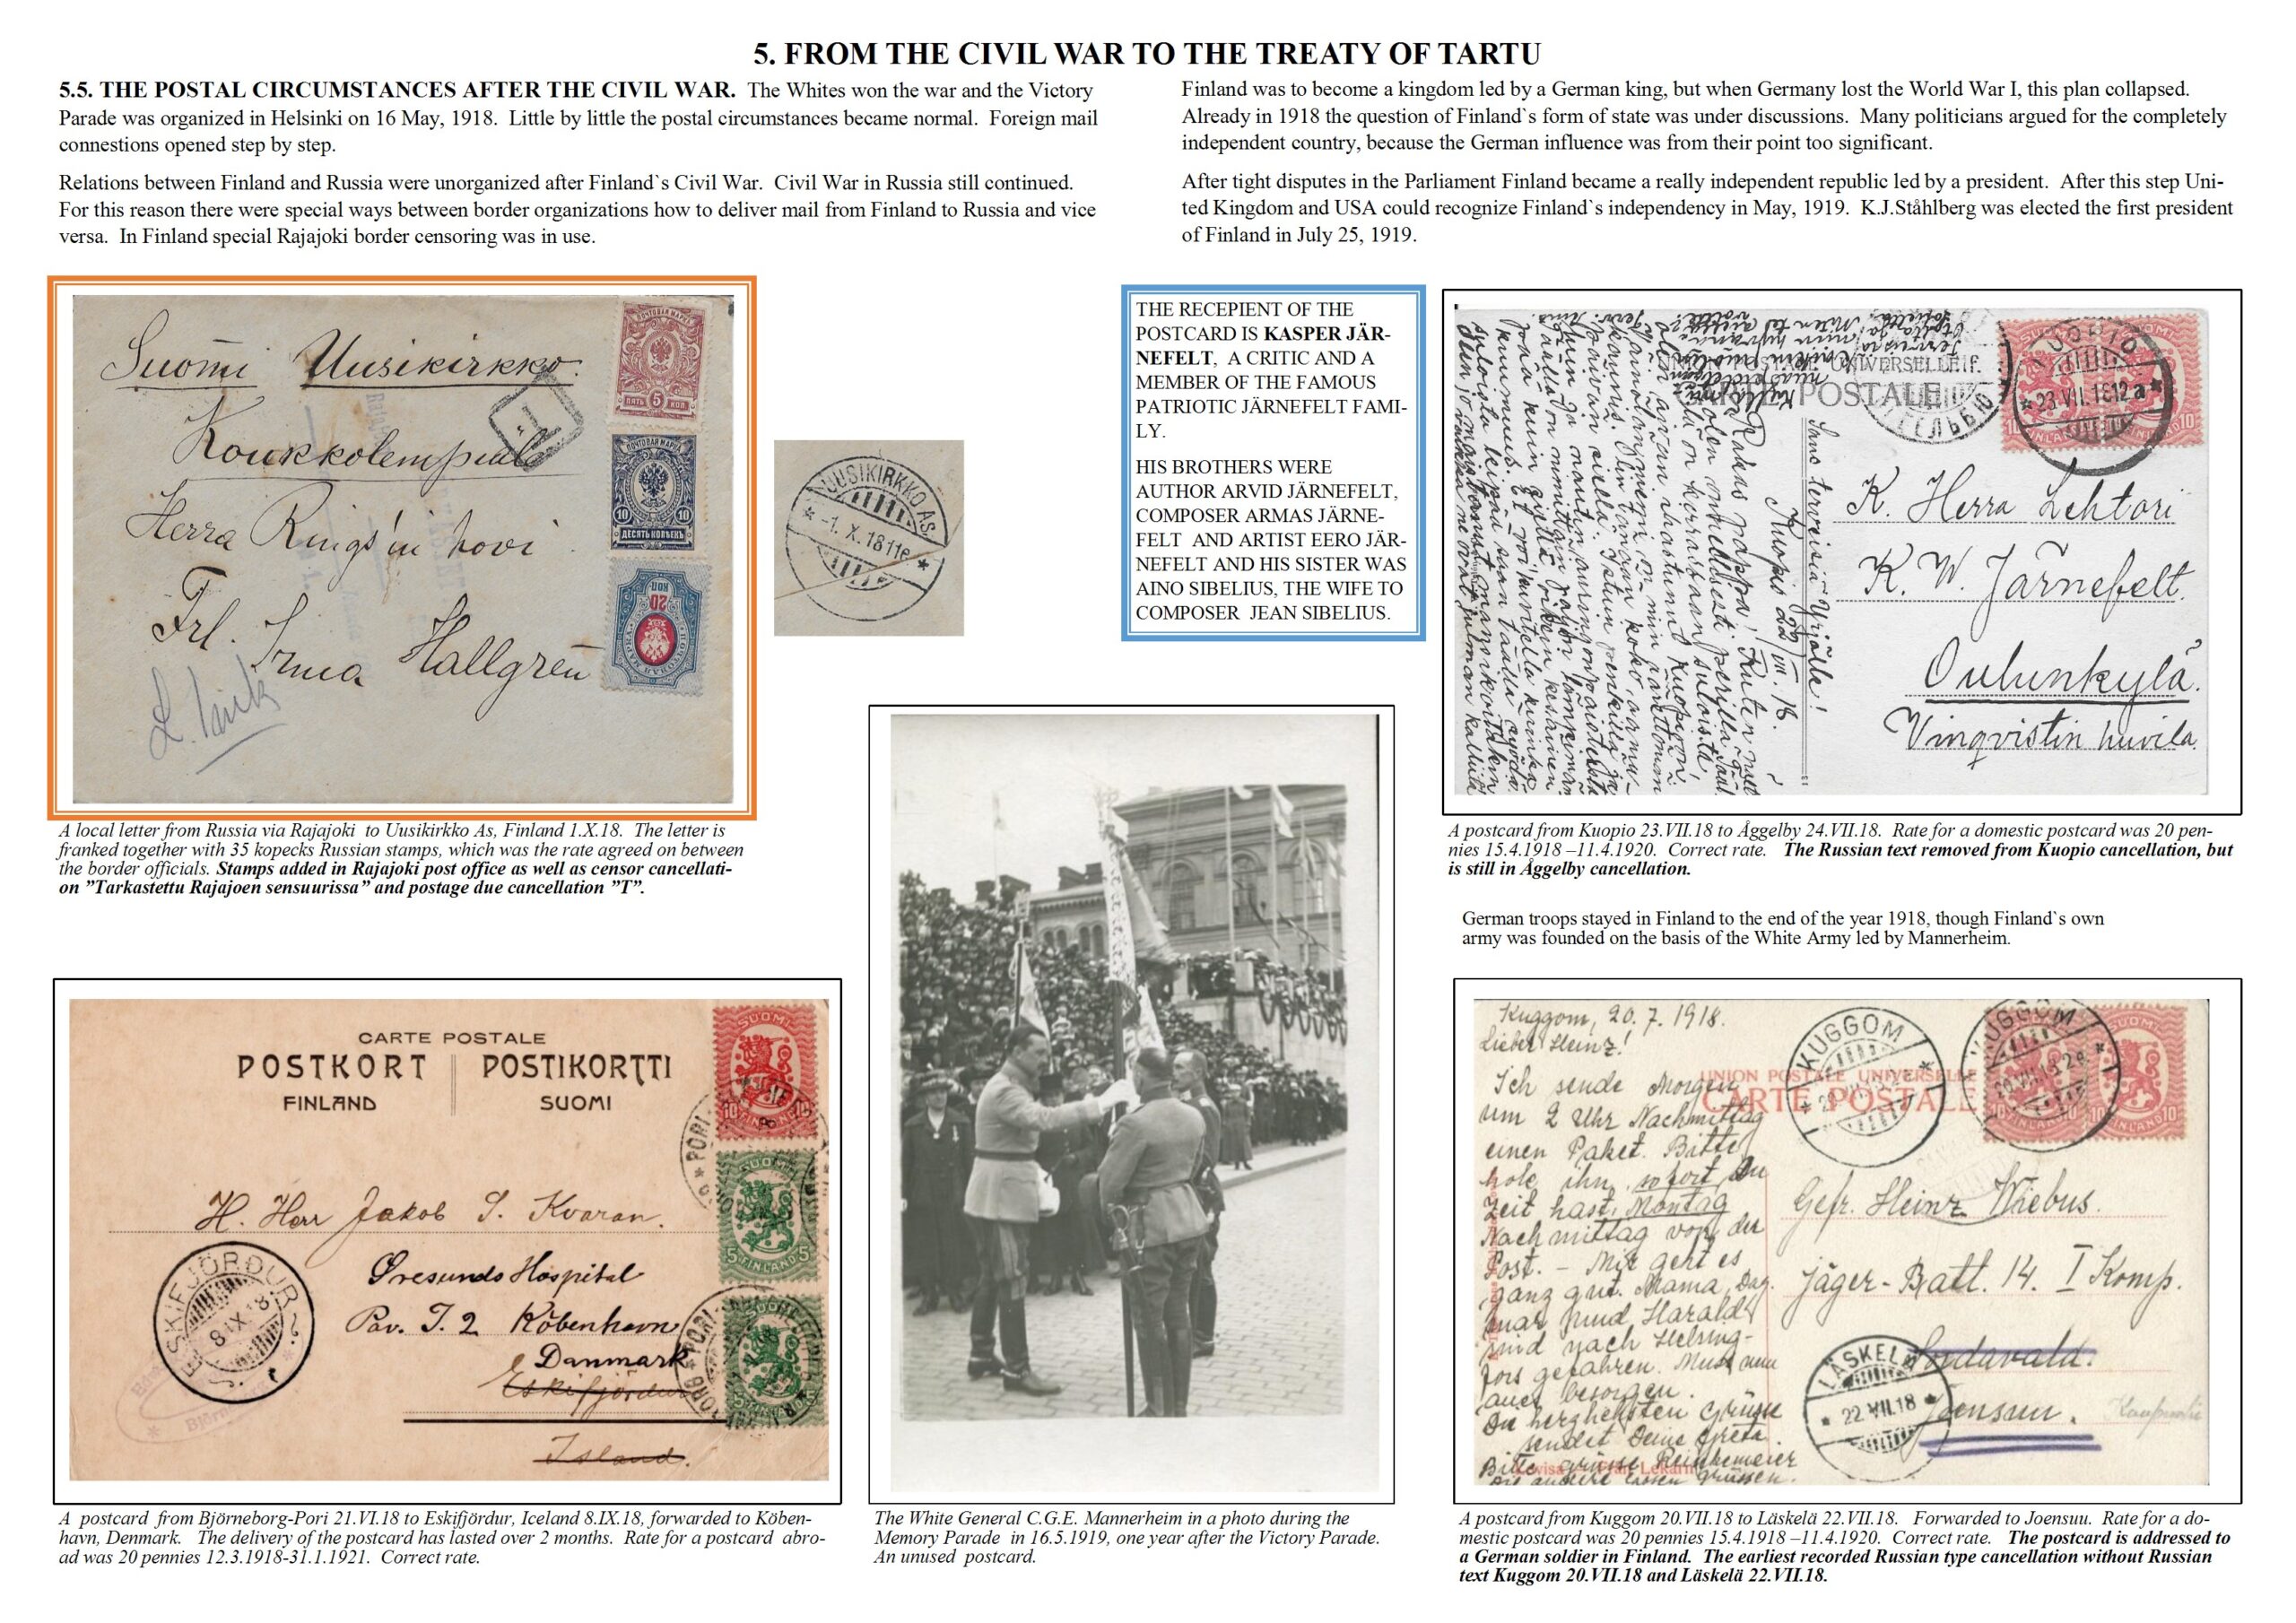 5. FROM THE CIVIL WAR TO THE TREATY OF TARTU
5.5. THE POSTAL CIRCUMSTANCES AFTER THE CIVIL WAR. The Whites won the war and the Victory
Parade was organized in Helsinki on 16 May, 1918. Little by little the postal circumstances became normal. Foreign mail
connestions opened step by step.
Relations between Finland and Russia were unorganized after Finland`s Civil War. Civil War in Russia still continued.
For this reason there were special ways between border organizations how to deliver mail from Finland to Russia and vice
versa. In Finland special Rajajoki border censoring was in use.
Finland was to become a kingdom led by a German king, but when Germany lost the World War I, this plan collapsed.
Already in 1918 the question of Finland`s form of state was under discussions. Many politicians argued for the completely
independent country, because the German influence was from their point too significant.
After tight disputes in the Parliament Finland became a really independent republic led by a president. After this step Uni-
ted Kingdom and USA could recognize Finland`s independency in May, 1919. K.J.Ståhlberg was elected the first president
of Finland in July 25, 1919.
Suomi Uusikirkko.
Koukkolempiälä
Herra Rings'in hovi
Frl. Irma Hallgrén
T
ПОЧТОВАЯ МАРКА
ПЯТЬ 5 КОП.
ПОЧТОВАЯ МАРКА
10 10
ДЕСЯТЬ КОПѢЕКЪ
20 КОП
UUSIKIRKKO AS.
* -1. X. 18 11e *
THE RECEPIENT OF THE
POSTCARD IS KASPER JÄR-
NEFELT, A CRITIC AND A
MEMBER OF THE FAMOUS
PATRIOTIC JÄRNEFELT FAMI-
LY.
HIS BROTHERS WERE
AUTHOR ARVID JÄRNEFELT,
COMPOSER ARMAS JÄRNE-
FELT AND ARTIST EERO JÄR-
NEFELT AND HIS SISTER WAS
AINO SIBELIUS, THE WIFE TO
COMPOSER JEAN SIBELIUS.
UNION POSTALE UNIVERSELLE
CARTE POSTALE
KUOPIO
* 23.VII.18 12a *
Kuopio 23/VII.18.
Rakas pappa!
K. Herra Lehtori
K. W. Järnefelt.
Oulunkylä.
Vinqvistin huvila
A local letter from Russia via Rajajoki to Uusikirkko As, Finland 1.X.18. The letter is
franked together with 35 kopecks Russian stamps, which was the rate agreed on between
the border officials. Stamps added in Rajajoki post office as well as censor cancellati-
on ”Tarkastettu Rajajoen sensuurissa” and postage due cancellation ”T”.
A postcard from Kuopio 23.VII.18 to Åggelby 24.VII.18. Rate for a domestic postcard was 20 pen-
nies 15.4.1918 –11.4.1920. Correct rate. The Russian text removed from Kuopio cancellation, but
is still in Åggelby cancellation.
German troops stayed in Finland to the end of the year 1918, though Finland`s own
army was founded on the basis of the White Army led by Mannerheim.
CARTE POSTALE
POSTKORT POSTIKORTTI
FINLAND SUOMI
SUOMI
10 10
SUOMI
5 FINLAND 5
H. Herr Jakob S. Kvaran.
Øresunds Hospital
Pav. I. 2 København
Danmark
Eskifjördur
Island.
ESKIFJÖRÐUR
8 IX 18
Kuggom, 20. 7. 1918.
Lieber Heinz!
Ich sende Morgen
um 2 Uhr Nachmittag
einen Paket. Bitte
hole ihn, sofort Du
Zeit hast, Montag
Nachmittag von der
Post. – Mir geht es
ganz gut. Mama, Dag-
mar und Harald
sind nach Helsing-
fors gefahren. Muss nun
auch besorgen.
Die herzlichsten Grüsse
sendet Deine Greta.
UNION POSTALE UNIVERSELLE
CARTE POSTALE
KUGGOM
KUGGOM
20.VII.18
Gefr. Heinz Wiebus.
Jäger-Batt. 14. I Komp.
Sordavald.
Joensuu.
LÄSKELÄ
* 22.VII.18 *
A postcard from Björneborg-Pori 21.VI.18 to Eskifjördur, Iceland 8.IX.18, forwarded to Köben-
havn, Denmark. The delivery of the postcard has lasted over 2 months. Rate for a postcard abro-
ad was 20 pennies 12.3.1918-31.1.1921. Correct rate.
The White General C.G.E. Mannerheim in a photo during the
Memory Parade in 16.5.1919, one year after the Victory Parade.
An unused postcard.
A postcard from Kuggom 20.VII.18 to Läskelä 22.VII.18. Forwarded to Joensuu. Rate for a do-
mestic postcard was 20 pennies 15.4.1918 –11.4.1920. Correct rate. The postcard is addressed to
a German soldier in Finland. The earliest recorded Russian type cancellation without Russian
text Kuggom 20.VII.18 and Läskelä 22.VII.18.